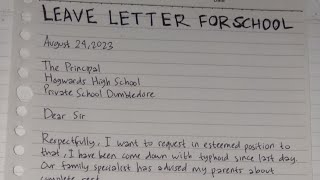 LEAVE LETTER FORSCHOOL
August 29,2023
The Principal
Hogwards High School
Private School Dumbledore
Dear Sir
Respectfully, I want to request in esteemed position to
that, I have been come down with typhoid since last day.
Our family specialist has advised my parents about
complete rest